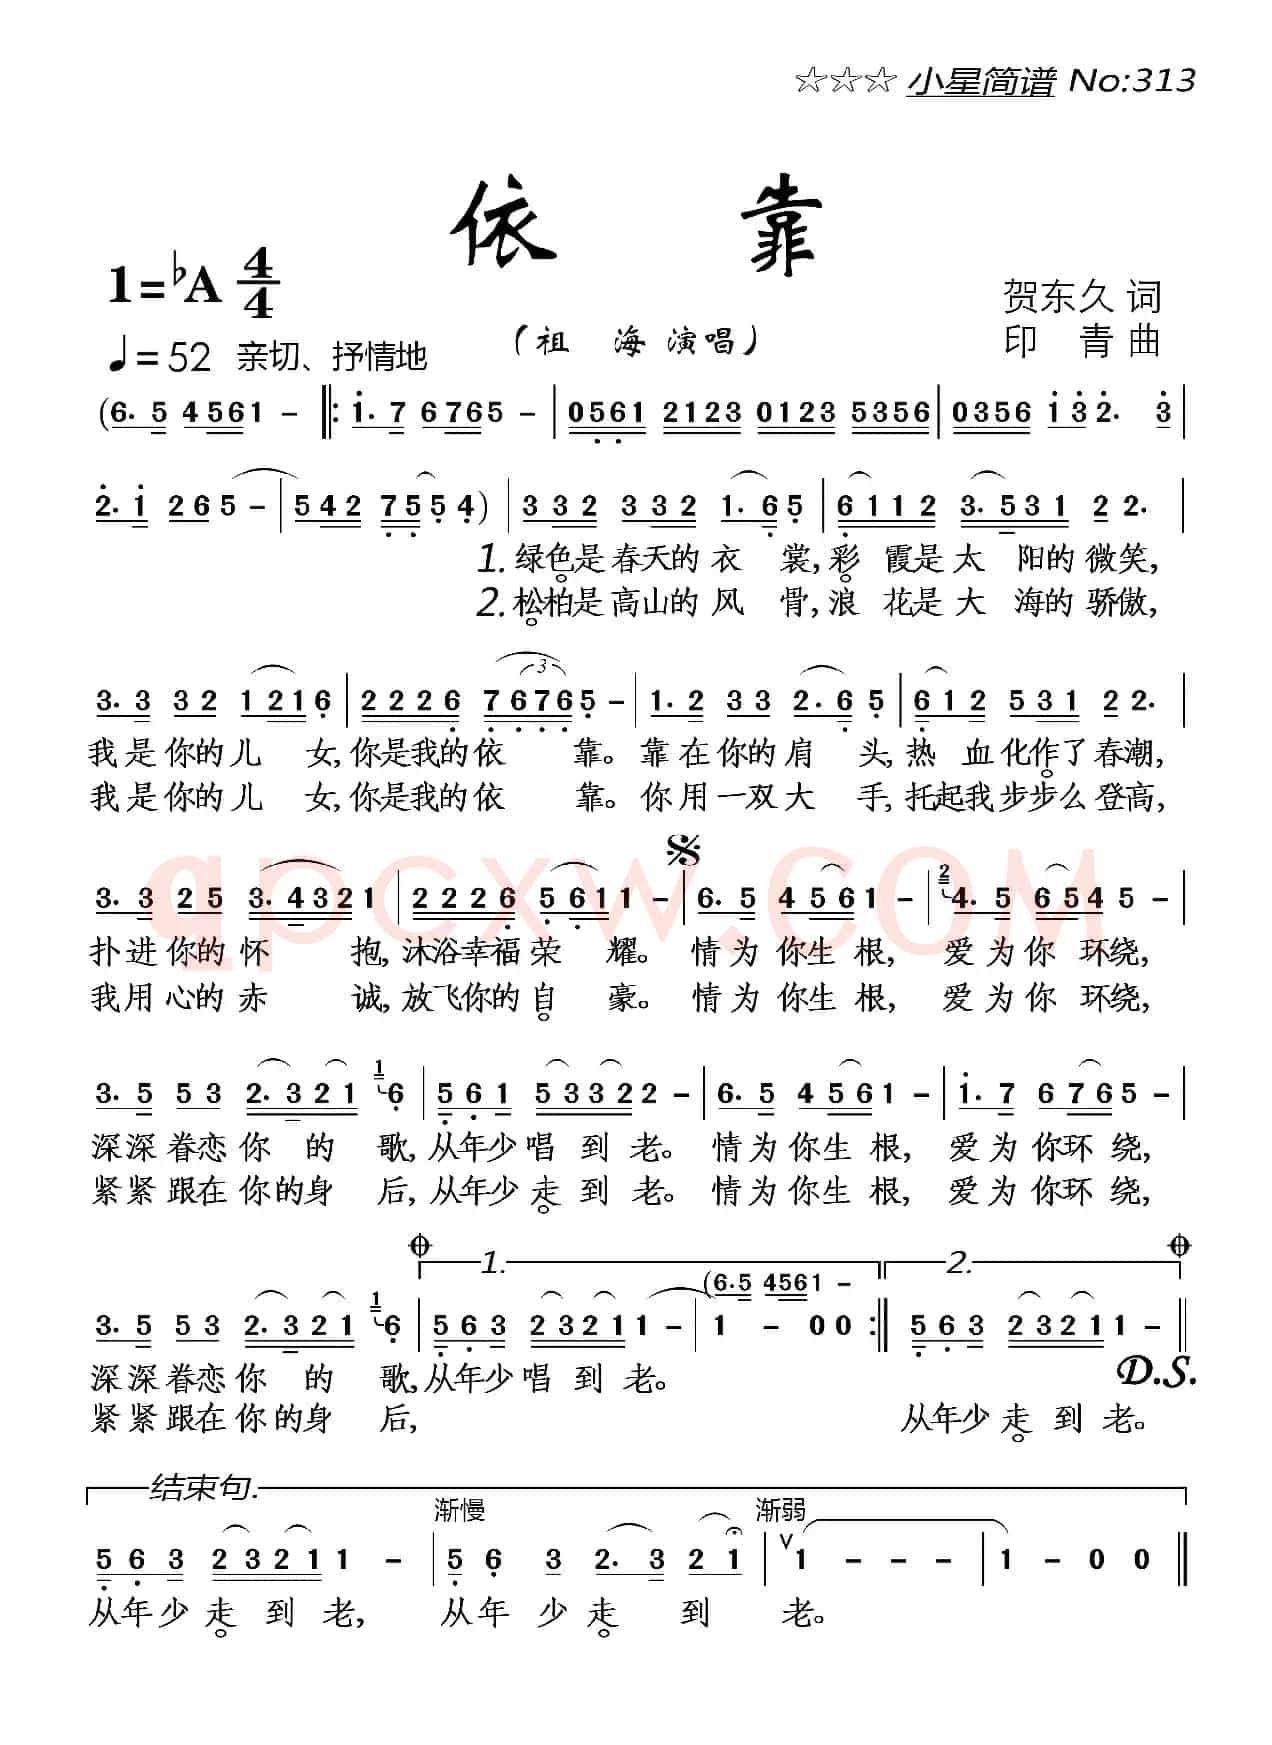 ☆☆☆ 小星简谱 No:313
依 靠
1=♭A 4/4
贺东久 词
♩=52 亲切、抒情地
(祖 海 演唱)
印 青 曲
(6. 5 4 5 6 1 – ‖: 1. 7 6 7 6 5 – | 0 5 6 1 2 1 2 3 0 1 2 3 5 3 5 6 | 0 3 5 6 1 3 2. 3 |
2. 1 2 6 5 – | 5 4 2 7 5 5 4) | 3 3 2 3 3 2 1. 6 5 | 6 1 1 2 3. 5 3 1 2 2. |
1. 绿色是春天的 衣 裳, 彩 霞是 太 阳的 微笑,
2. 松柏是 高山的 风 骨, 浪 花是 大 海的 骄傲,
3. 3 3 2 1 2 1 6 | 2 2 2 6 7 6 7 6 5 – | 1. 2 3 3 2. 6 5 | 6 1 2 5 3 1 2 2. |
我是你的儿 女, 你是我的依 靠。 靠在你的肩 头, 热 血化作了春潮,
我是你的儿 女, 你是我的依 靠。 你用一双大 手, 托起我步步么登高,
3. 3 2 5 3. 4 3 2 1 | 2 2 2 6 5 6 1 1 – | 6. 5 4 5 6 1 – | 2 4. 5 6 5 4 5 – |
扑进你的怀 抱, 沐浴幸福荣 耀。 情为你生根, 爱为你 环绕,
我用心的赤 诚, 放飞你的自 豪。 情为你生根, 爱为你 环绕,
3. 5 5 3 2. 3 2 1 1 6 | 5 6 1 5 3 3 2 2 – | 6. 5 4 5 6 1 – | 1. 7 6 7 6 5 – |
深深眷恋你 的 歌, 从年少唱 到 老。 情为你生 根, 爱为你环绕,
紧紧跟在你的身 后, 从年少走 到 老。 情为你生 根, 爱为你环绕,
1. 2.
(6. 5 4 5 6 1 –
3. 5 5 3 2. 3 2 1 1 6 | 5 6 3 2 3 2 1 1 – | 1 – 0 0 :‖ 5 6 3 2 3 2 1 1 – ‖
D.S.
深深眷恋你 的 歌, 从年少唱 到 老。
紧紧跟在你的身 后, 从年少 走 到 老。
结束句.
渐慢 渐弱
5 6 3 2 3 2 1 1 – | 5 6 3 2. 3 2 1 | ∨ 1 – – – | 1 – 0 0 ‖
从年少 走 到 老, 从年 少走 到 老。
qpcxw.com